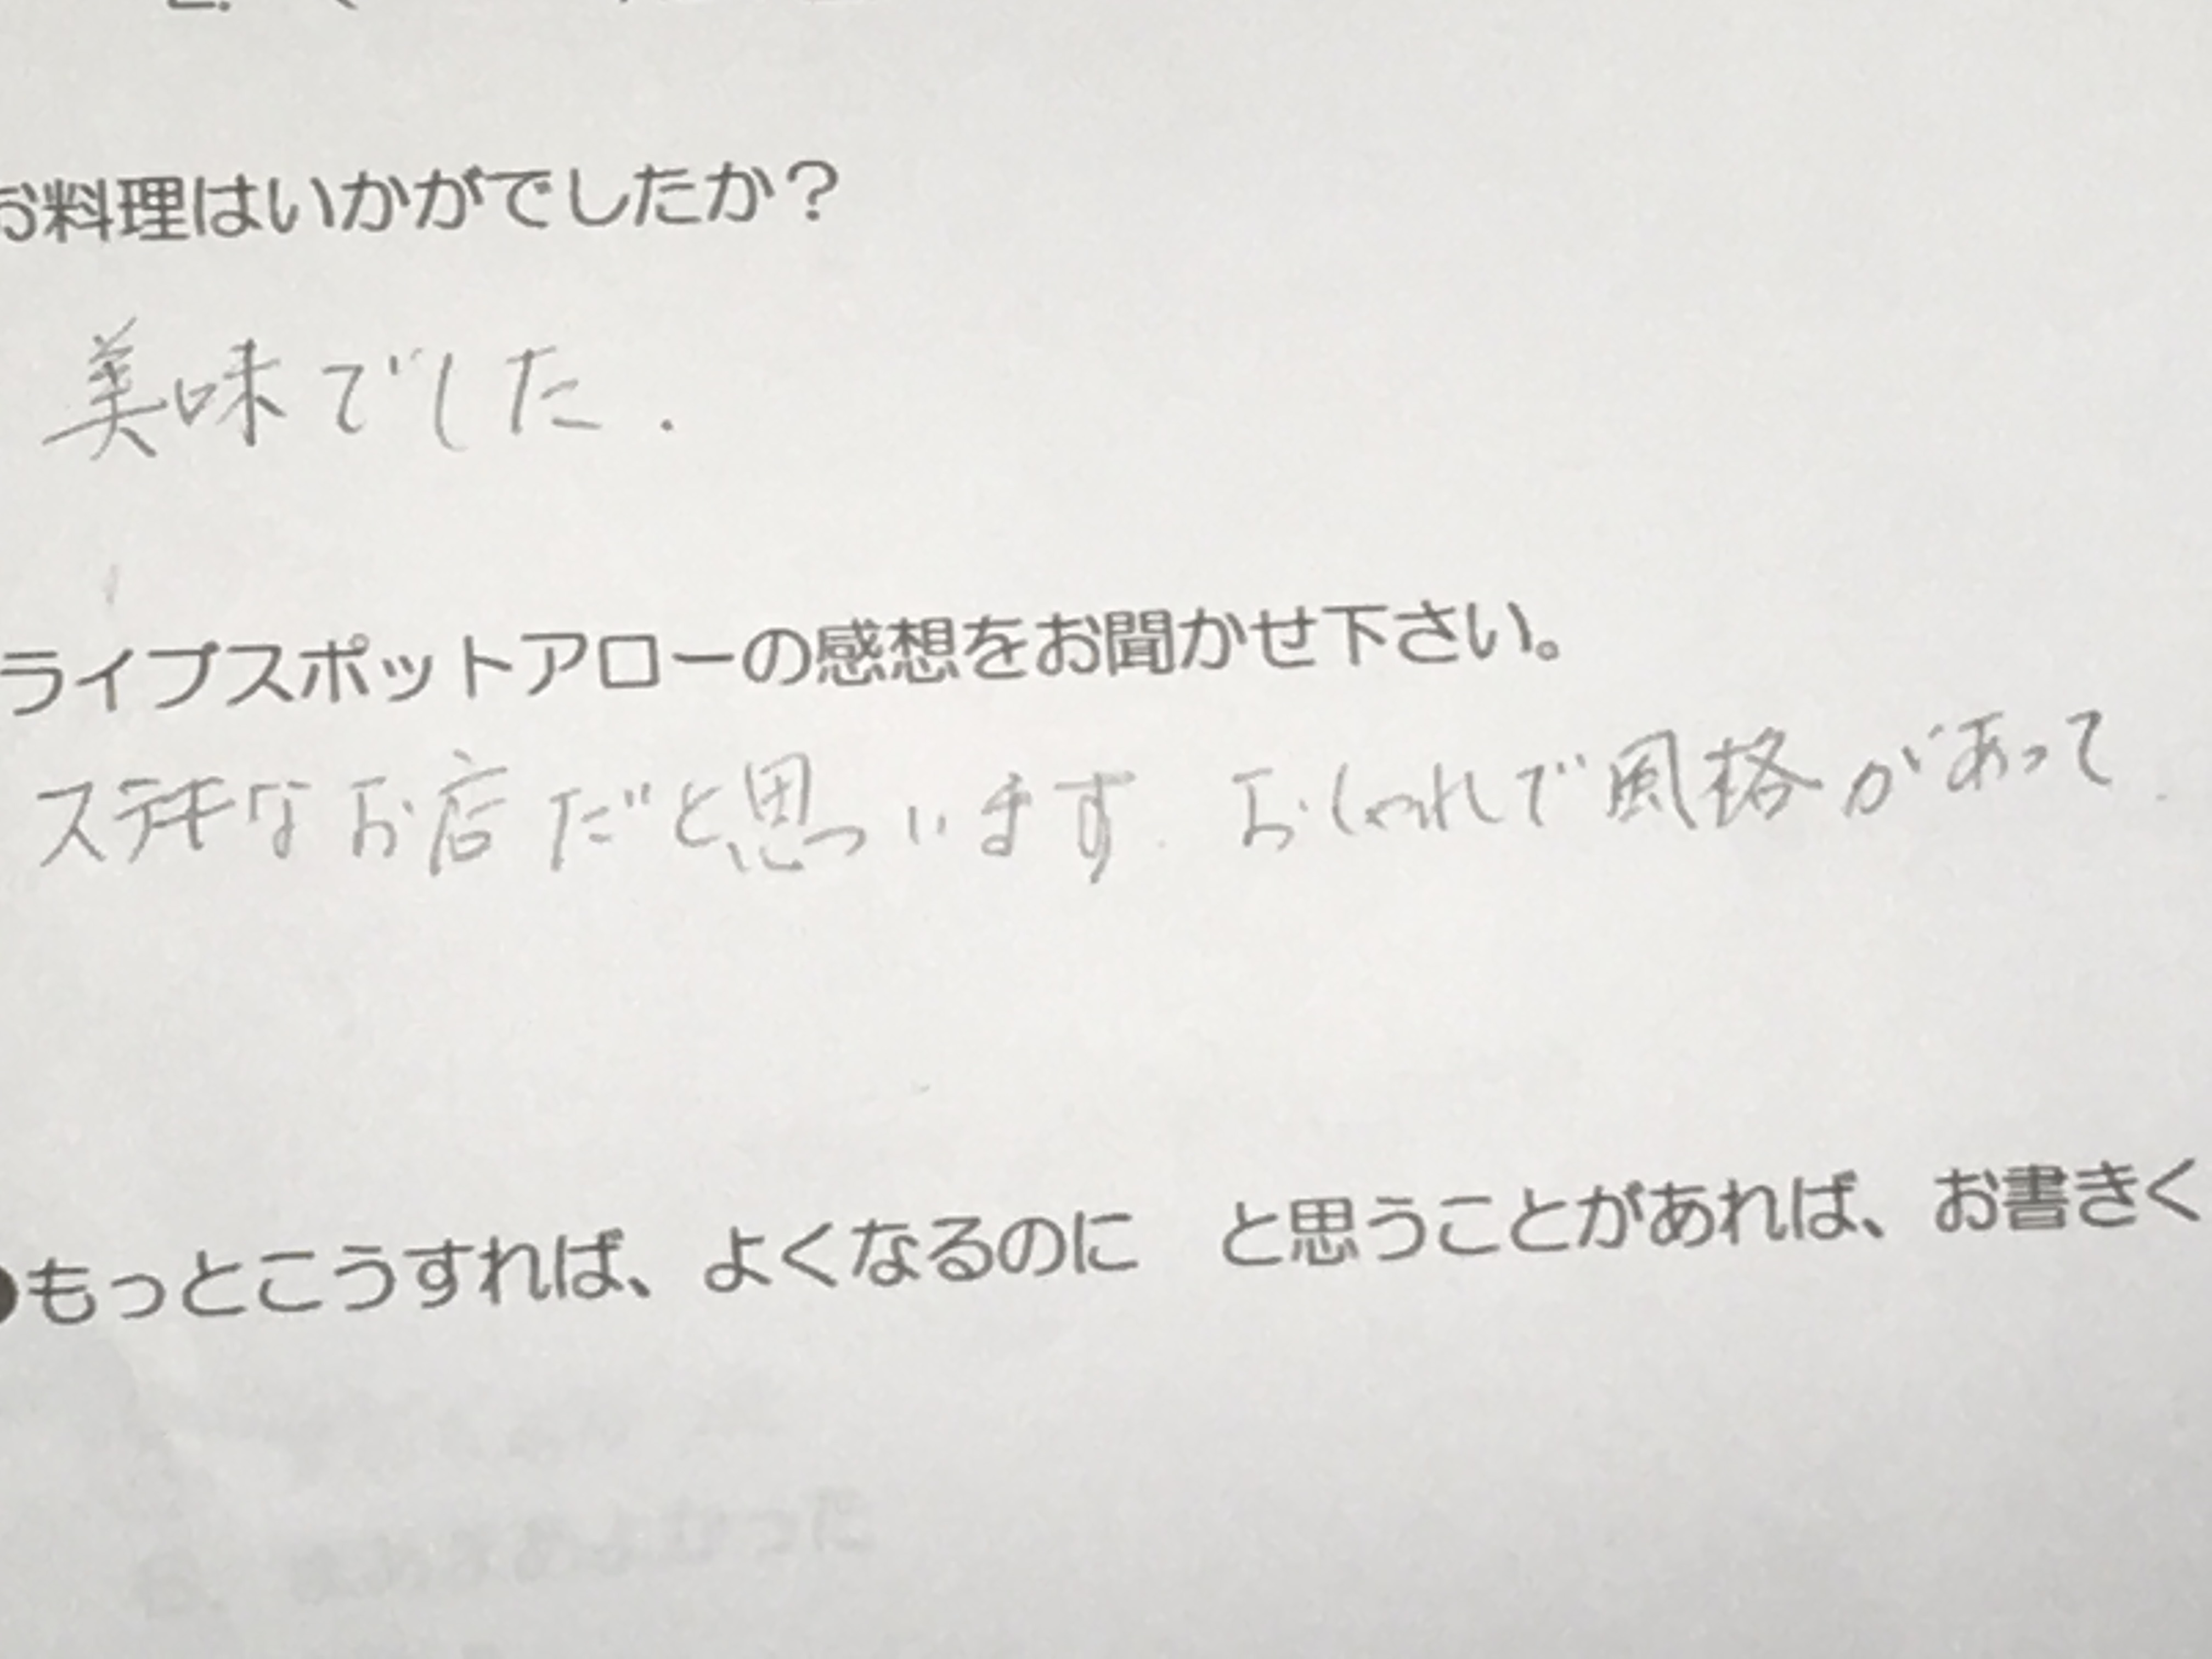 お料理はいかがでしたか？
美味でした.
ライブスポットアローの感想をお聞かせ下さい。
ステキなお店だと思います. おしゃれで風格があって.
●もっとこうすれば、よくなるのに　と思うことがあれば、お書きく